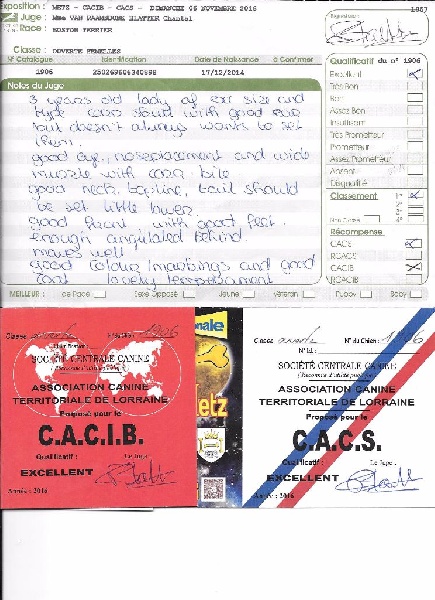 Exposition : METZ - CACIB - CACS - DIMANCHE 06 NOVEMBRE 2016
Juge : Mme VAN VAARDUNNE BLATTER Chantal
Race : BOSTON TERRIER
Signature
1887
Classe : OUVERTE FEMELLES
N° Catalogue Identification Date de Naissance à Confirmer
1906 250269604340998 17/12/2014
Notes du Juge
3 years old lady of exr size and
type exxr stand with good ears
but doesn't always wants to set
them.
good eye, noseplacement and wide
muzzle with corr bite
good neck, topline, tail should
be set little lower.
good front with good feet.
enough angulated behind.
moves well
good colour/markings and good
coat lovely temperament
Qualificatif du n° 1906
Excellent
Très Bon
Bon
Assez Bon
Insuffisant
Très Prometteur
Prometteur
Assez Prometteur
Absent
Disqualifié
Classement
Non Classé
Récompense
CACS
RCACS
CACIB
RCACIB
MEILLEUR : de Race Sexe Opposé Jeune Vétéran Puppy Baby
Classe : ouverte N° du Chien : 1906
SOCIÉTÉ CENTRALE CANINE
(Reconnue d'utilité publique)
ASSOCIATION CANINE
TERRITORIALE DE LORRAINE
Proposé pour le
C.A.C.I.B.
Qualificatif : Le Juge,
EXCELLENT
Année : 2016
nale
etz
Classe ouverte N° du Chien : 1906
N° Id :
SOCIÉTÉ CENTRALE CANINE
(Reconnue d'utilité publique)
ASSOCIATION CANINE
TERRITORIALE DE LORRAINE
Proposé pour le
C.A.C.S.
Qualificatif : Le Juge,
EXCELLENT
Année : 2016